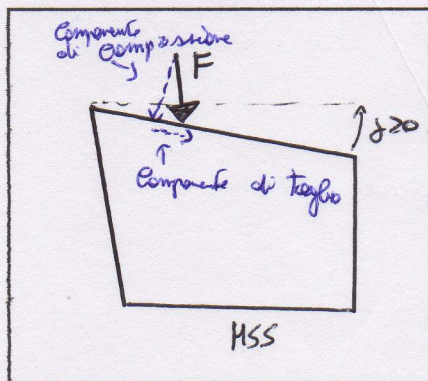 Componente
di Compressione
F
γ>0
Componente di taglio
HSS